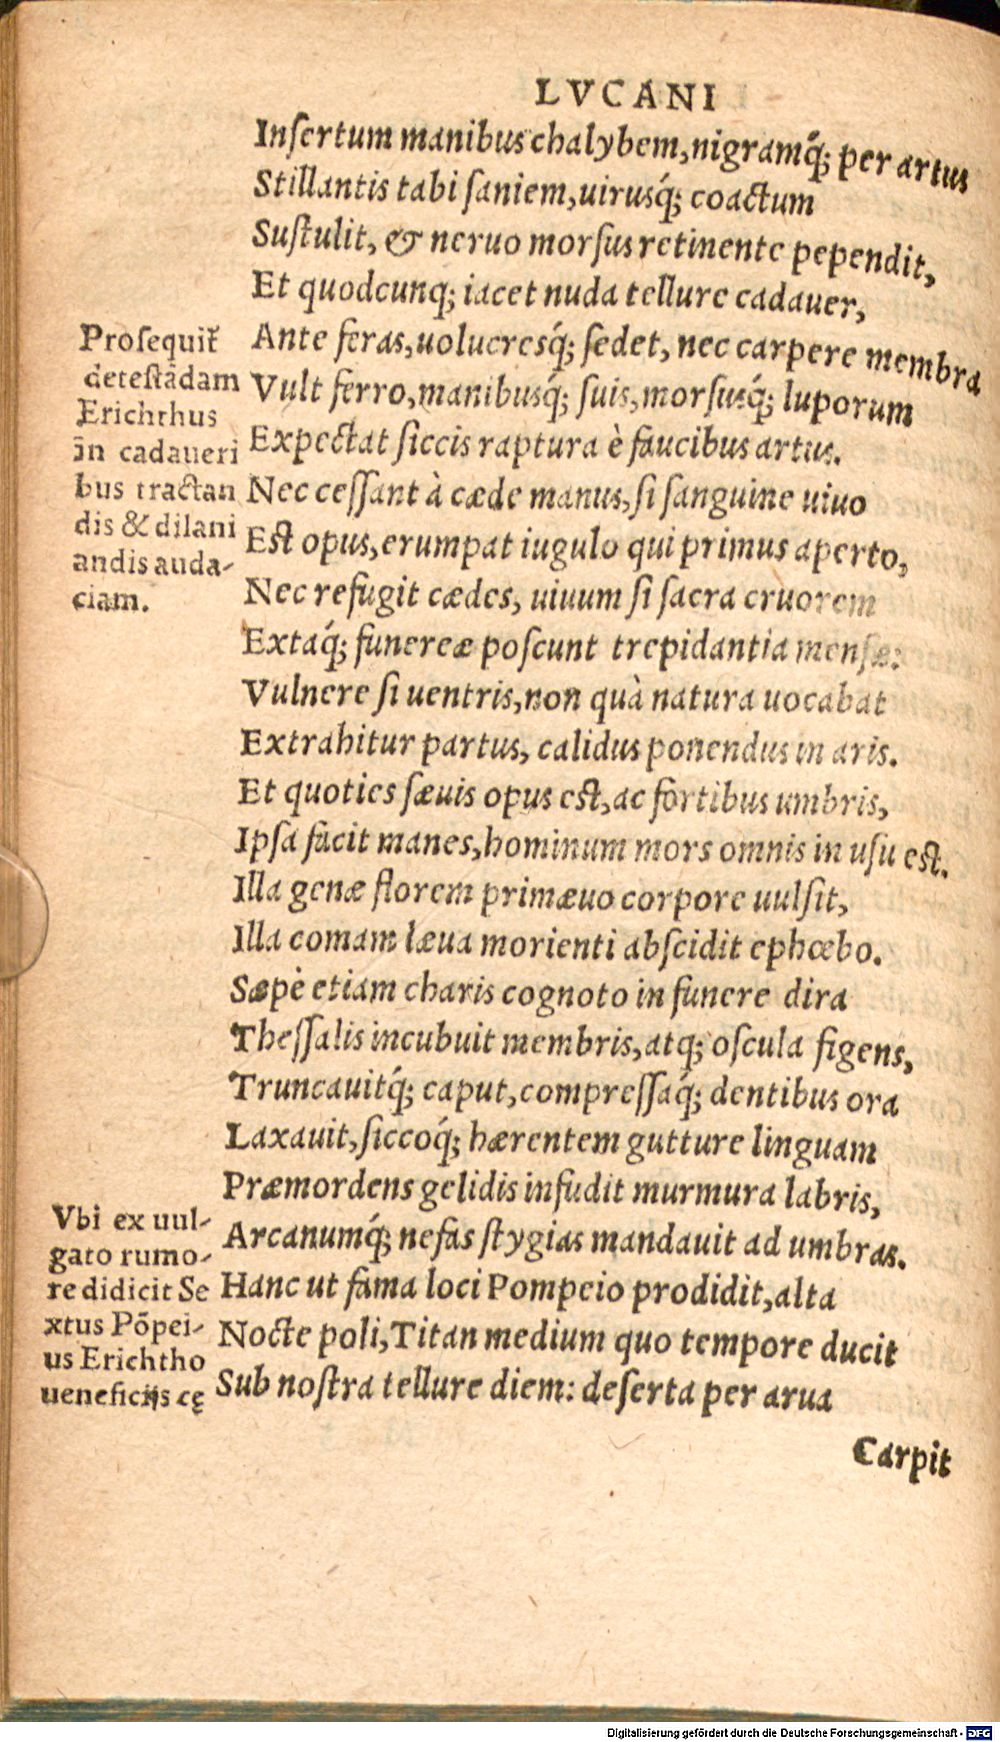 LVCANI
Inſertum manibus chalybem,nigramq́; per artus
Stillantis tabi ſaniem,uirusq́; coactum
Suſtulit, & neruo morſus retinente pependit,
Et quodcunq; iacet nuda tellure cadauer,
Ante feras,uolucresq́; ſedet, nec carpere membra
Vult ferro,manibusq́; ſuis,morſusq́; luporum
Expectat ſiccis raptura è faucibus artus.
Nec ceſſant à cæde manus,ſi ſanguine uiuo
Eſt opus,erumpat iugulo qui primus aperto,
Nec refugit cædes, uiuum ſi ſacra cruorem
Extaq́; funereæ poſcunt trepidantia menſæ:
Vulnere ſi uentris,non quà natura uocabat
Extrahitur partus, calidus ponendus in aris.
Et quoties ſæuis opus eſt,ac fortibus umbris,
Ipſa facit manes,hominum mors omnis in uſu eſt.
Illa genæ florem primæuo corpore uulſit,
Illa comam læua morienti abſcidit ephœbo.
Sæpè etiam charis cognoto in funere dira
Theſſalis incubuit membris,atq; oſcula figens,
Truncauitq́; caput,compreſſaq́; dentibus ora
Laxauit,ſiccoq́; hærentem gutture linguam
Præmordens gelidis infudit murmura labris,
Arcanumq́; nefas ſtygias mandauit ad umbras.
Hanc ut fama loci Pompeio prodidit,alta
Nocte poli,Titan medium quo tempore ducit
Sub noſtra tellure diem: deſerta per arua
Carpit
Proſequit᷑
deteſtãdam
Erichthus
ĩn cadaueri
bus tractan
dis & dilani
andis auda-
ciam.
Vbi ex uul-
gato rumo-
re didicit Se
xtus Põpei-
us Erichtho
ueneficijs cę
Digitalisierung gefördert durch die Deutsche Forschungsgemeinschaft - DFG